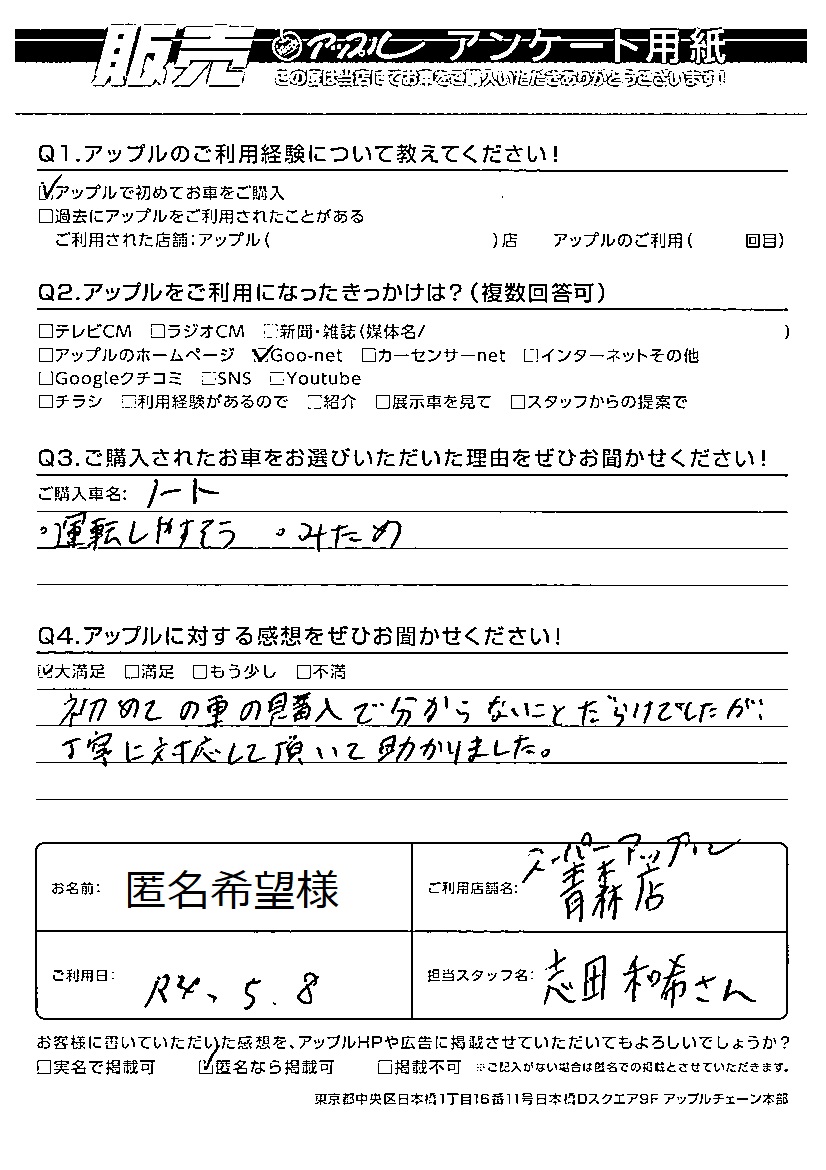 販売 アップル アンケート用紙
この度は当店にてお車をご購入いただきありがとうございます!
Q1.アップルのご利用経験について教えてください!
☑アップルで初めてお車をご購入
□過去にアップルをご利用されたことがある
ご利用された店舗:アップル( )店 アップルのご利用( 回目)
Q2.アップルをご利用になったきっかけは?(複数回答可)
□テレビCM □ラジオCM □新聞・雑誌(媒体名/ )
□アップルのホームページ ☑Goo-net □カーセンサーnet □インターネットその他
□Googleクチコミ □SNS □Youtube
□チラシ □利用経験があるので □紹介 □展示車を見て □スタッフからの提案で
Q3.ご購入されたお車をお選びいただいた理由をぜひお聞かせください!
ご購入車名: ノート
。運転しやすそう 。みため
Q4.アップルに対する感想をぜひお聞かせください!
☑大満足 □満足 □もう少し □不満
初めての車の購入で分からないことだらけでしたが
丁寧に対応して頂いて助かりました。
お名前: 匿名希望様
ご利用店舗名: スーパーアップル
青森店
ご利用日: R4、5.8
担当スタッフ名: 志田和希さん
お客様に書いていただいた感想を、アップルHPや広告に掲載させていただいてもよろしいでしょうか?
□実名で掲載可 ☑匿名なら掲載可 □掲載不可 ※ご記入がない場合は匿名での掲載とさせていただきます。
東京都中央区日本橋1丁目16番11号日本橋Dスクエア9F アップルチェーン本部